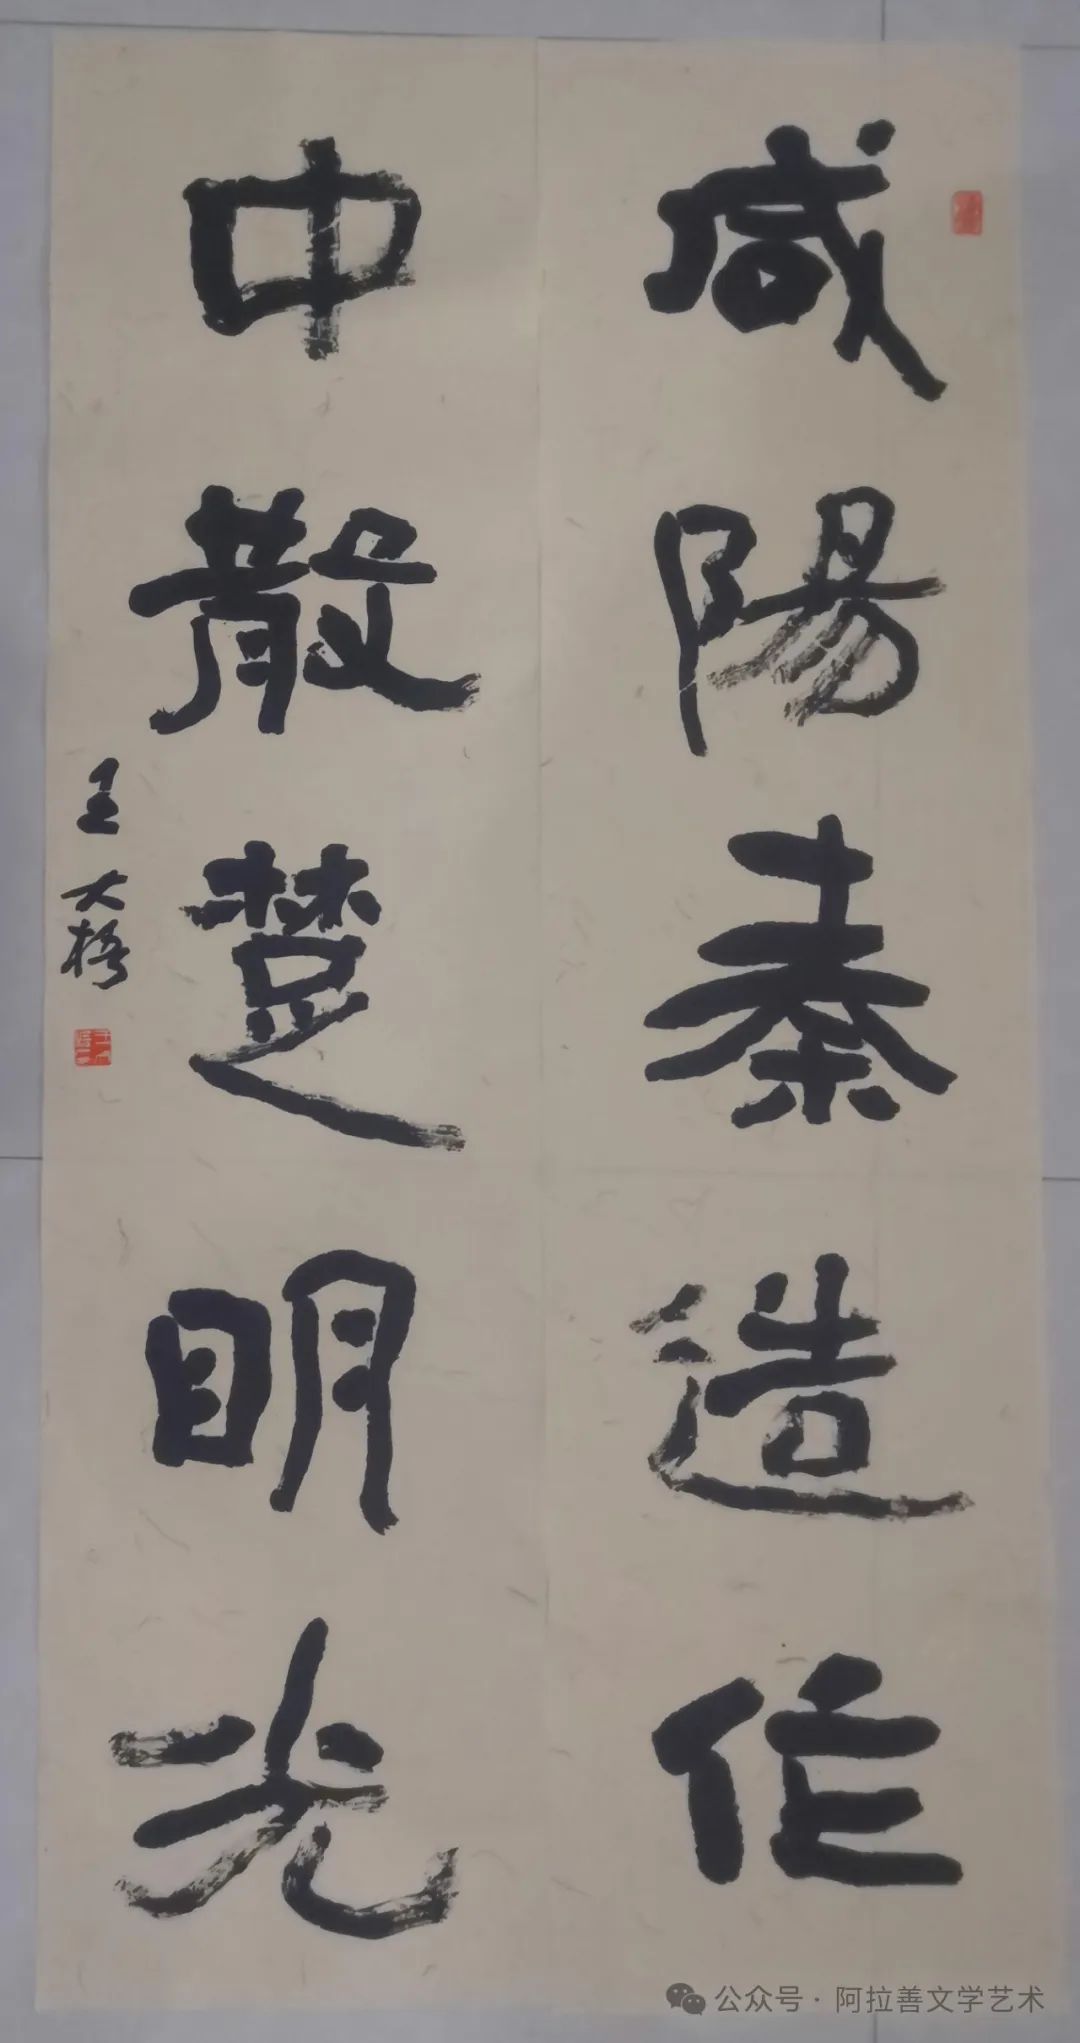 咸陽秦造作
中散楚明光
王大梅
公众号·阿拉善文学艺术